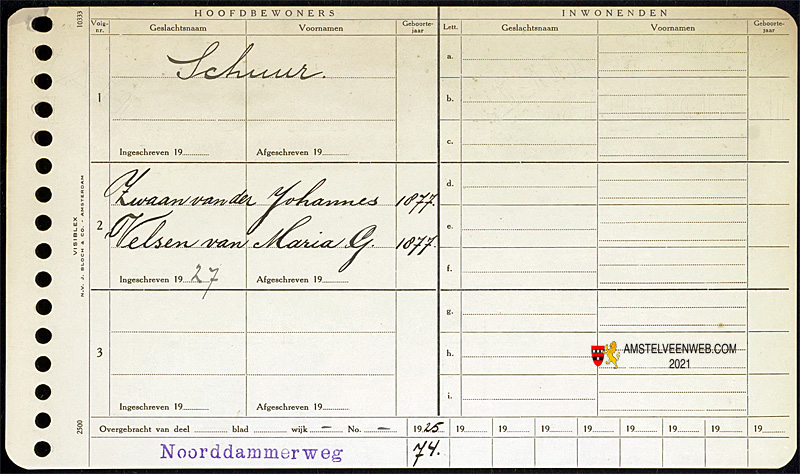 HOOFDBEWONERS INWONENDEN
Volg-nr. Geslachtsnaam Voornamen Geboorte-jaar Lett. Geslachtsnaam Voornamen Geboorte-jaar
10333
Schuur.
1
Ingeschreven 19 Afgeschreven 19
a.
b.
c.
Zwaan van der Johannes 1877.
2
Velsen van Maria G. 1877.
Ingeschreven 19 27 Afgeschreven 19
d.
e.
f.
3
Ingeschreven 19 Afgeschreven 19
g.
h.
i.
VISIBLEX
N.V. J. BLOCH & CO. - AMSTERDAM
2500
AMSTELVEENWEB.COM
2021
Overgebracht van deel blad wijk – No. – 1925 19 19 19 19 19 19 19 19
Noorddammerweg 74.